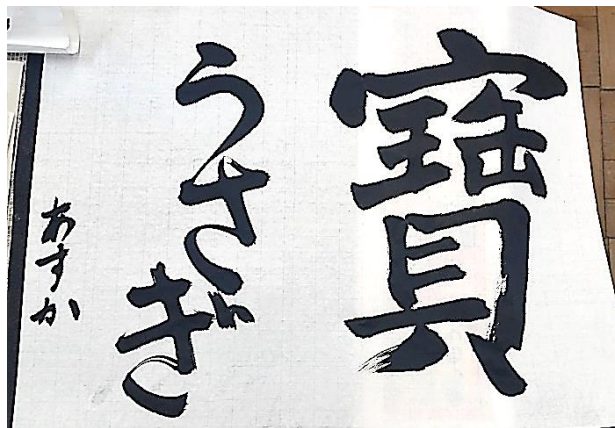 寶
うさぎ
あすか